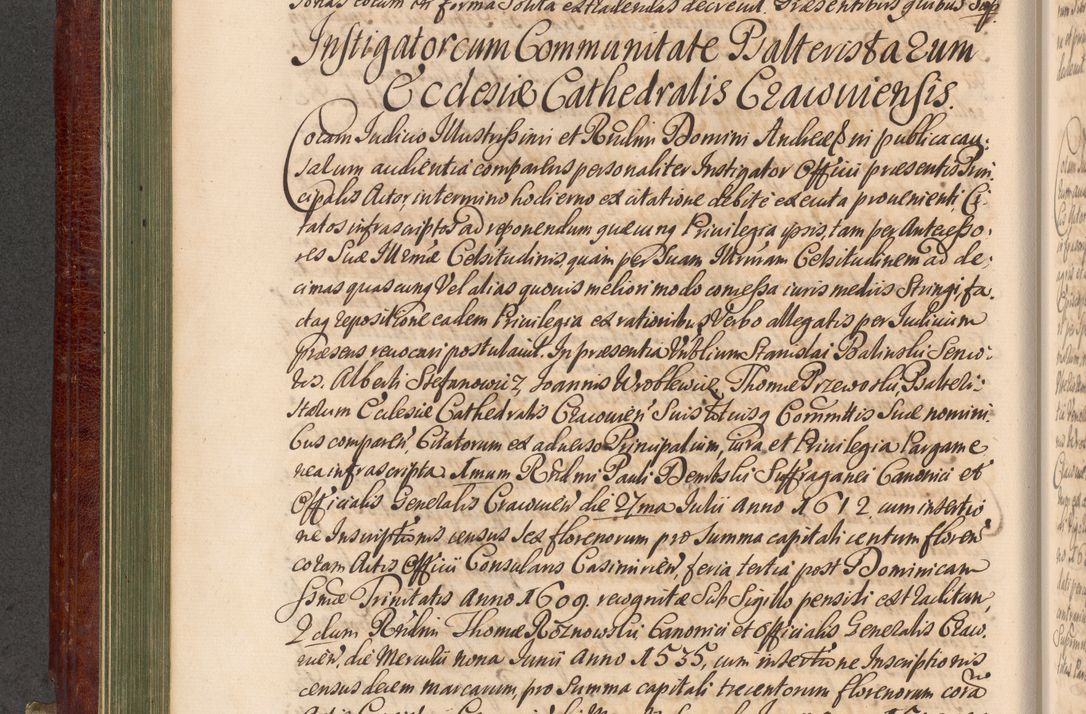 Instigator cum Communitate Psalteristarum
Ecclesiæ Cathedralis Cracouiensis.
Coram Iudicio Illustrissimi et Rndmi Domini Andreæ in publica cau:
salum audientia comparens personaliter Instigator Officii præsentis Prin:
cipalis Actor, in termino hodierno ex citatione debite executa prouenienti, Ci:
tatos infrascriptos ad reponendum quæcunq Priuilegia ipsis, tam per Antecesso:
res Suæ Illrmæ Celsitudinis, quam per Suam Illrmam Celsitudinem ad de:
cimas quascunq Vel alias quouis meliori modo concessa iuris mediis Stringi, fa:
ctaq repositione eadem Priuilegia ex rationibus Verbo allegatis per Iudicium
præsens reuocari postulauit. In præsentia Nblium Stanislai Balinskii Senio:
ris, Alberti Stefanowicz, Joannis Wroblewic, Thomæ Przeworski, Psalteri:
starum Ecclesiæ Cathedralis Cracouien Suis totiusq Commttis Suæ nomini
bus comparen, Citatorum ex aduerso Principalium, iura et Priuilegia Pargame
nea infrascripta 1mum Rndmi Pauli Dembski Suffraganei Canonici et
Officialis Generalis Cracouien die 27ma Julii Anno 1612. cum insertio
ne Inscriptionis census sex florenorum pro Summa capitali centum floren
coram Actis Officii Consularis Casimirien, feria tertia post Dominicam
Ssmæ Trinitatis Anno 1609. recognitæ Sub Sigillo pensili extraditum,
2dum Rndmi Thomæ Roznowskii Canonici et Officialis Generalis Craco:
uien, die Mercurii nona Junii Anno 1535, cum insertione Inscriptionis
census decem marcarum, pro Summa capitali trecentorum florenorum corã